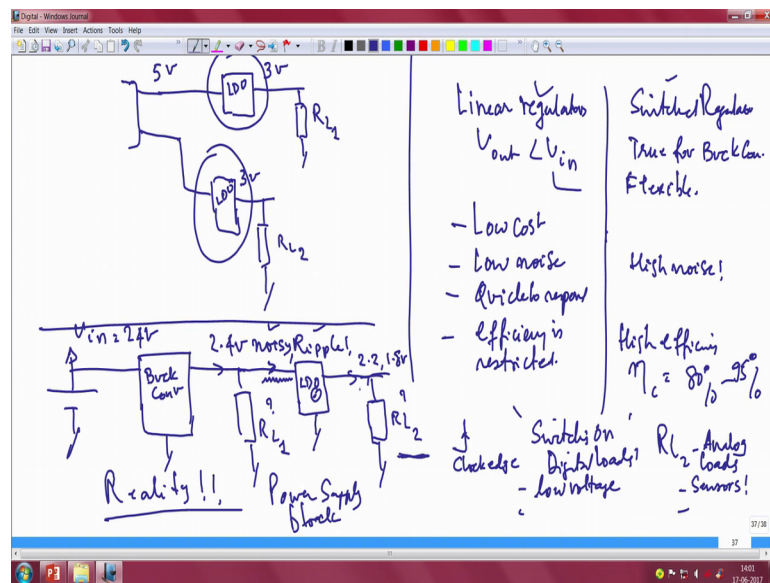 Digital - Windows Journal
File Edit View Insert Actions Tools Help
5V
LDO
3V
RL1
LDO
3V
RL2
Vin = 24V
Buck
Conv
2.4V noisy, Ripple!
RL1
?
LDO
2.2, 1.8V
?
RL2
Reality!!
Power Supply
block
Linear regulators
Vout < Vin
- Low cost
- Low noise
- Quick to respon
- efficieny is
restricted.
Switched Regulator
True for Buck Con.
Flexible.
High noise!
High efficiny
ηc = 80% - 95%
Clock edge
Switch's On
Digital loads!
- low voltage
RL2 - Analog
Loads
- Sensors!
37/38
37
14:01
17-06-2017